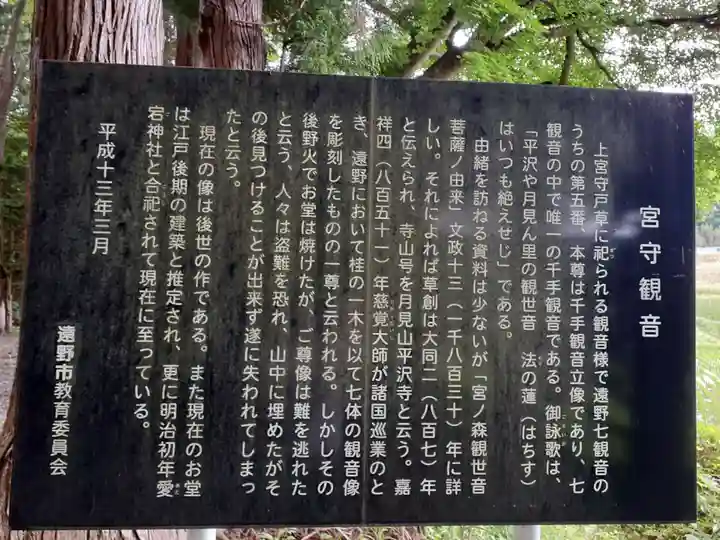 宮守観音
上宮守戸草に祀られる観音様で遠野七観音の
うちの第五番、本尊は千手観音立像であり、七
観音の中で唯一の千手観音である。御詠歌は、
「平沢や月見ん里の観世音　法の蓮（はちす）
はいつも絶えせじ」である。
由緒を訪ねる資料は少ないが「宮ノ森観世音
菩薩ノ由来」文政十三（一千八百三十）年に詳
しい。それによれば草創は大同二（八百七）年
と伝えられ、寺山号を月見山平沢寺と云う。嘉
祥四（八百五十一）年慈覚大師が諸国巡業のと
き、遠野において桂の一木を以て七体の観音像
を彫刻したものの一尊と云われる。しかしその
後野火でお堂は焼けたが、ご尊像は難を逃れた
と云う、人々は盗難を恐れ、山中に埋めたがそ
の後見つけることが出来ず遂に失われてしまっ
たと云う。
現在の像は後世の作である。また現在のお堂
は江戸後期の建築と推定され、更に明治初年愛
宕神社と合祀されて現在に至っている。
平成十三年三月
遠野市教育委員会